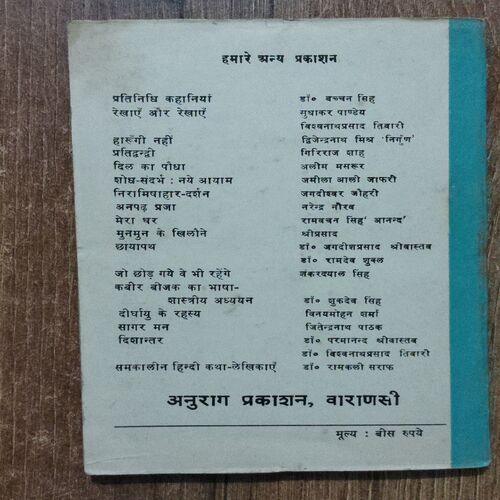 हमारे अन्य प्रकाशन
प्रतिनिधि कहानियां डॉ० बच्चन सिंह
रेखाएँ और रेखाएँ सुधाकर पाण्डेय
विश्वनाथप्रसाद तिवारी
हारूँगी नहीं द्विजेन्द्रनाथ मिश्र 'निर्गुण'
प्रतिद्वन्द्वी गिरिराज शाह
दिल का पौधा अलीम मसरूर
शोध-संदर्भ : नये आयाम जमीला आली जाफरी
निरामिषाहार-दर्शन जगदीश्वर जौहरी
अनपढ़ प्रजा नरेन्द्र नीरव
मेरा घर रामवचन सिंह 'आनन्द'
मुनमुन के खिलौने श्रीप्रसाद
छायापथ डॉ० जगदीशप्रसाद श्रीवास्तव
डॉ० रामदेव शुक्ल
जो छोड़ गये वे भी रहेंगे शंकरदयाल सिंह
कबीर बीजक का भाषा-
शास्त्रीय अध्ययन डॉ० शुकदेव सिंह
दीर्घायु के रहस्य विनयमोहन शर्मा
सागर मन जितेन्द्रनाथ पाठक
दिशान्तर डॉ० परमानन्द श्रीवास्तव
डॉ० विश्वनाथप्रसाद तिवारी
समकालीन हिन्दी कथा-लेखिकाएँ डॉ० रामकली सराफ
अनुराग प्रकाशन, वाराणसी
मूल्य : बीस रुपये